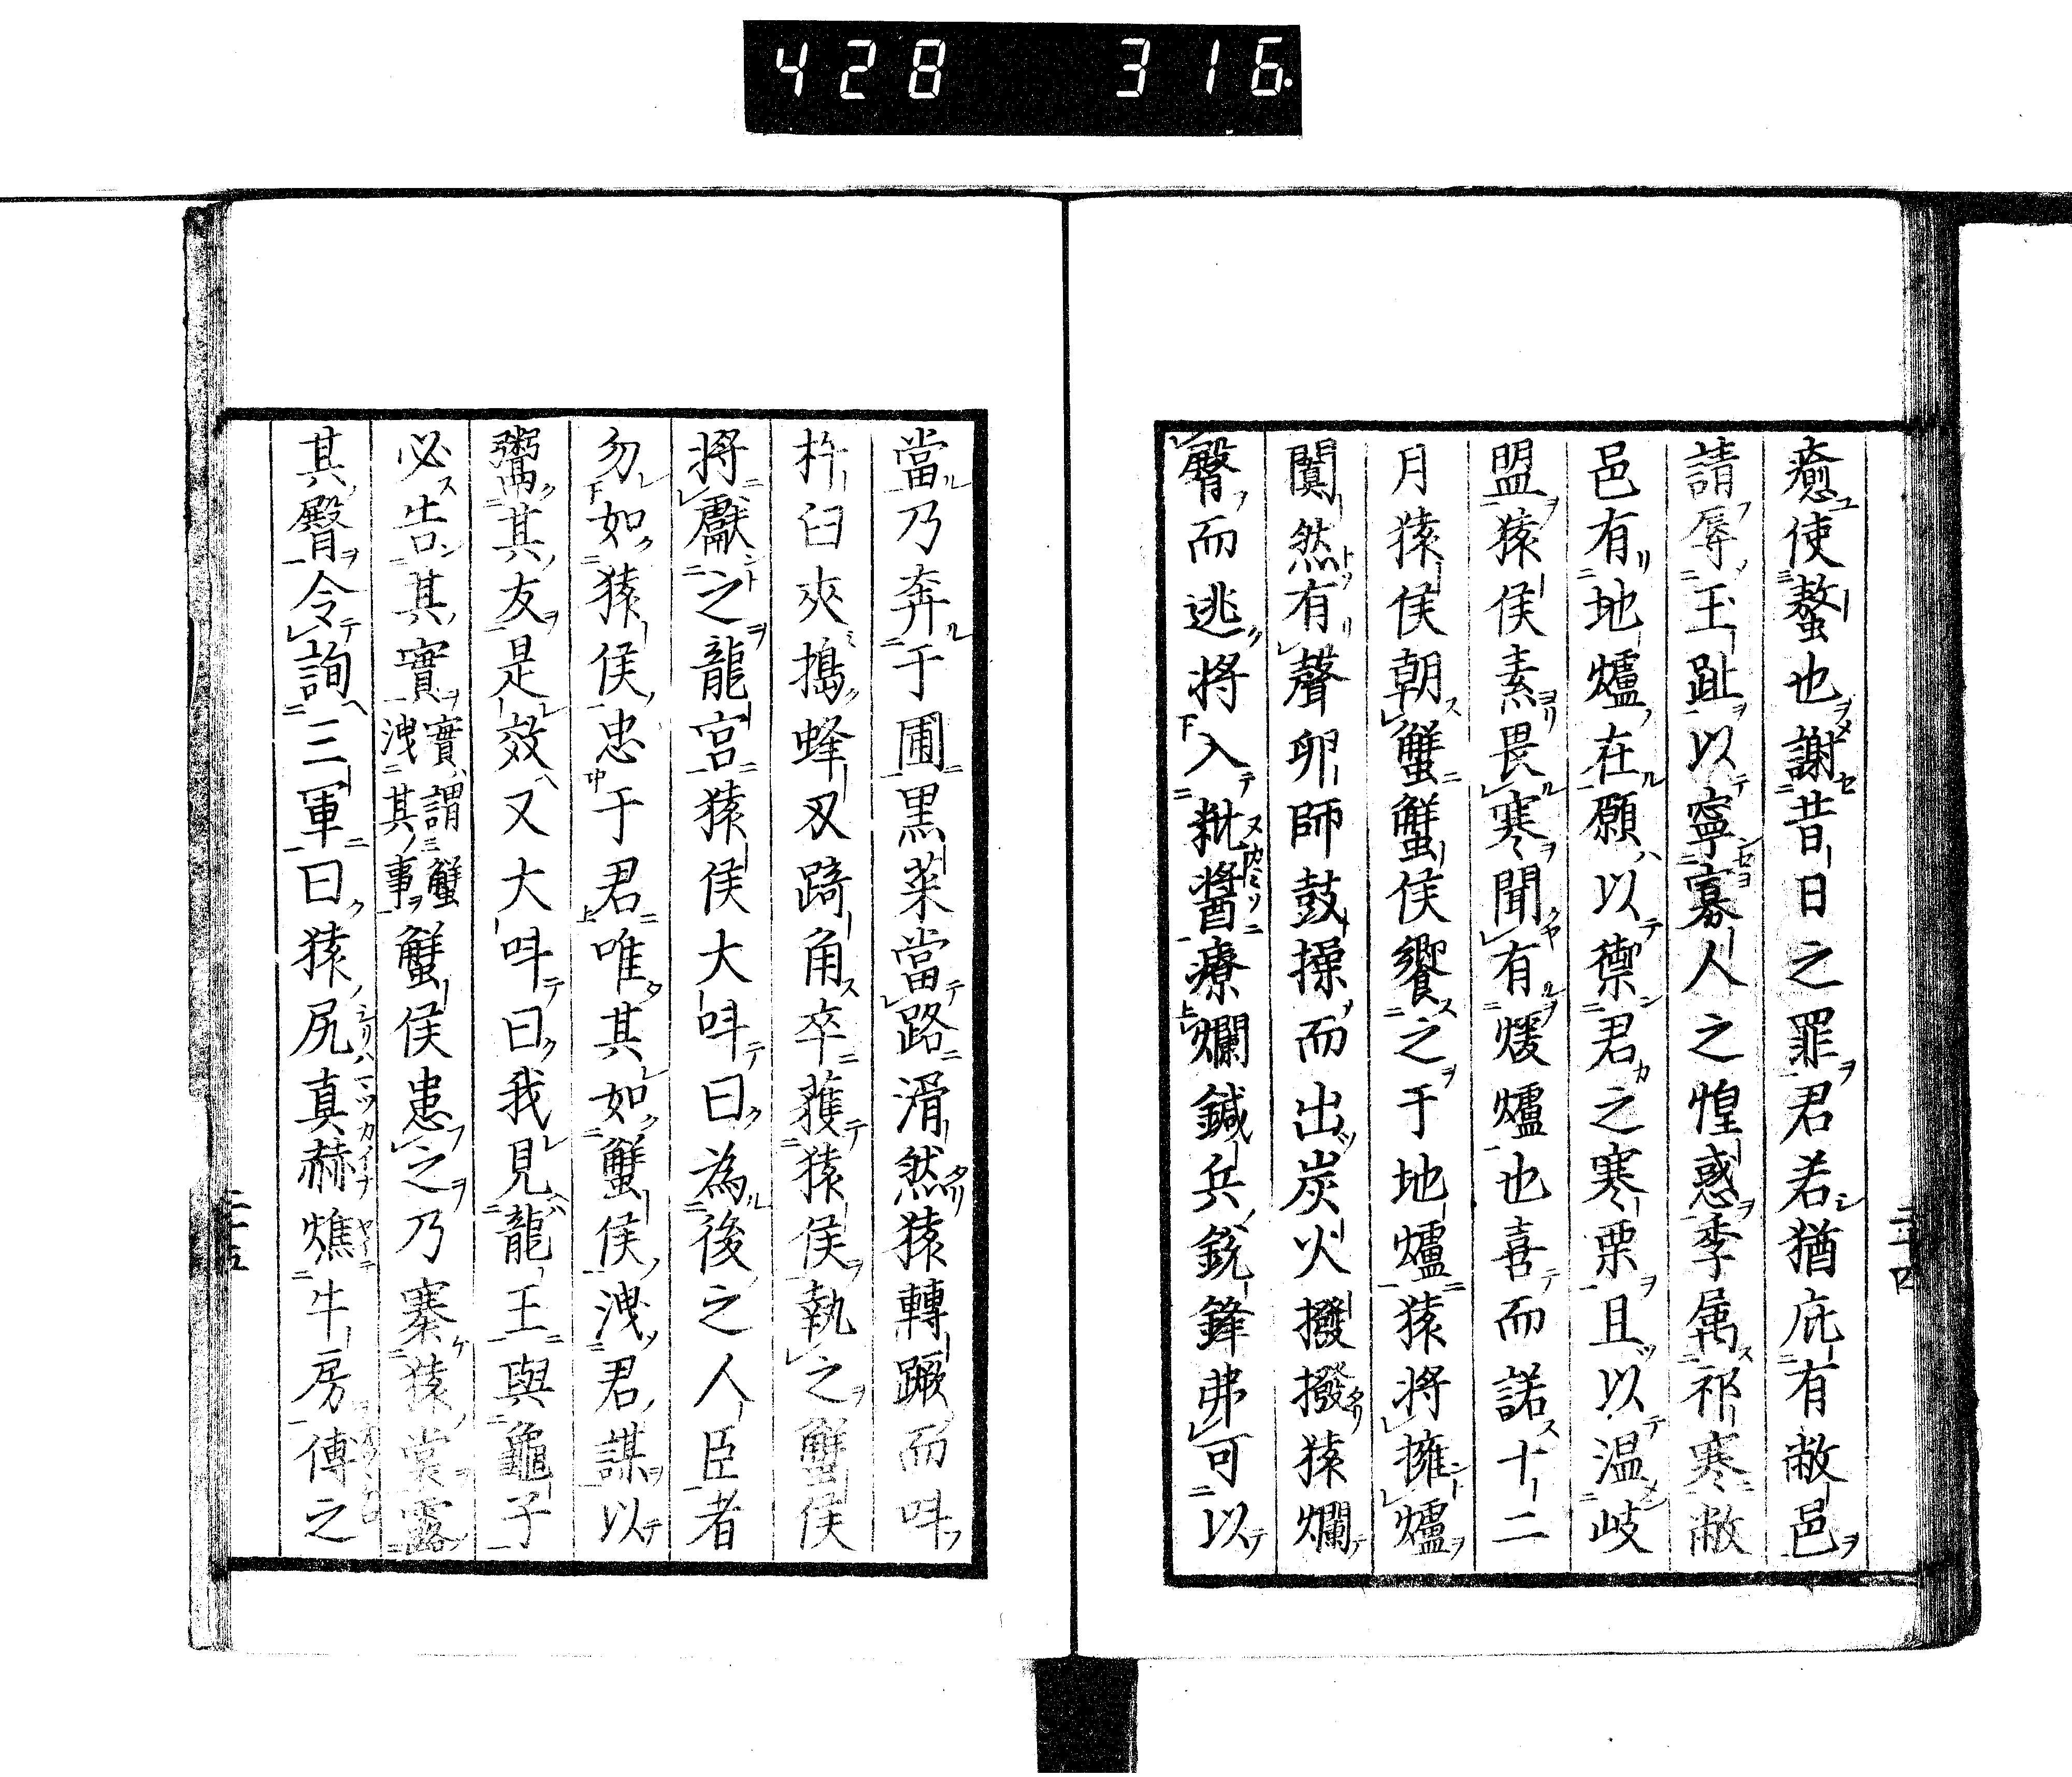 428 316
癒使螯也謝昔日之罪君若猶庇有敝邑
請辱玉趾以寧寡人之惶惑季属祁寒敝
邑有地爐在願以禦君之寒栗且以温岐
盟猿侯素畏寒聞有煖爐也喜而諾十二
月猿侯朝蟹蟹侯饗之于地爐猿將擁爐
闐然有聲卵師鼓操而出炭火撥撥猿爛
臀而逃將入粃醬療爛鍼兵銳鋒弗可以
二十四
當乃奔于圃黒菜當路滑然猿轉蹶而呌
杵臼夾搗蜂刄踦角卒獲猿侯執之蟹侯
將獻之龍宮猿侯大呌曰為後之人臣者
勿如猿侯忠于君唯其如蟹侯洩君謀以
鬻其友是效又大呌曰我見龍王與龜子
必告其實實謂蟹洩其事蟹侯患之乃褰猿裳露
其臀令詢三軍曰猿尻真赫燋牛房傅之
二十五